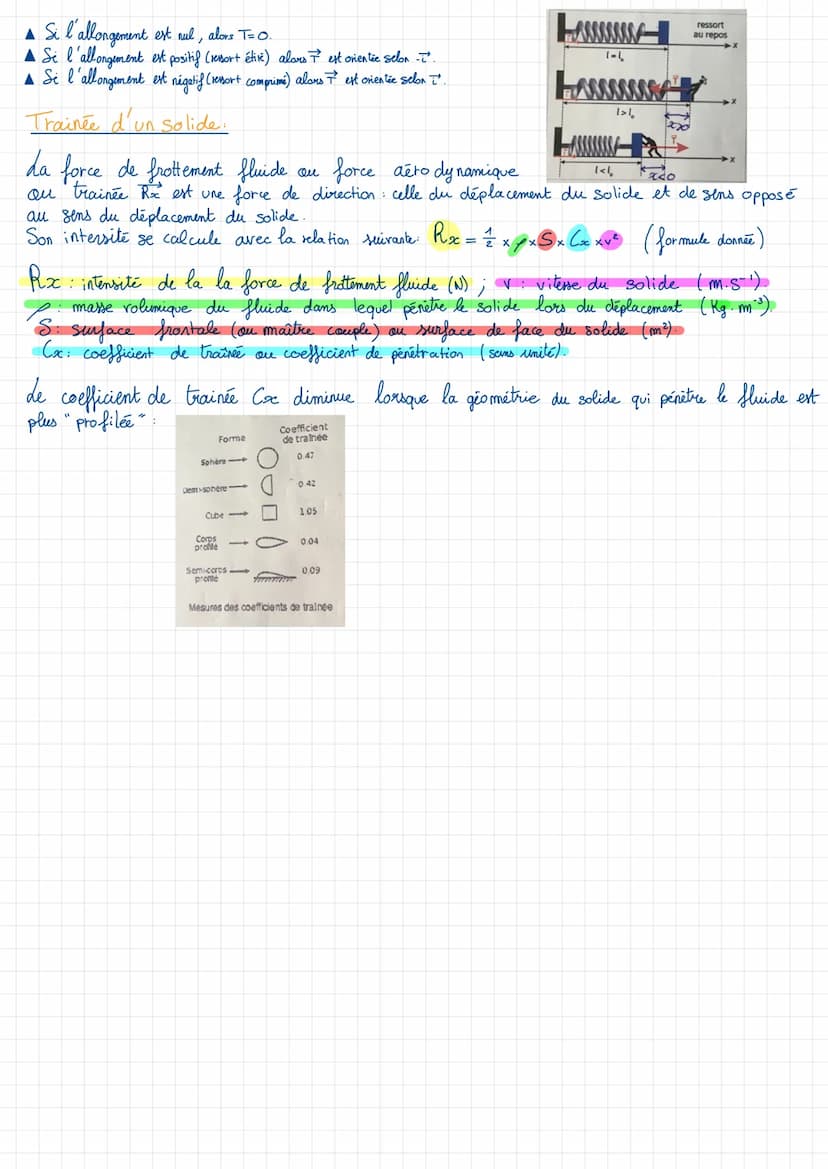 ▲ Si l'allongement est nul, alors T=0.
▲ Si l'allongement est positif (ressort étiré) alors T⃗ est orientée selon -i⃗.
▲ Si l'allongement est négatif (ressort comprimé) alors T⃗ est orientée selon i⃗.
ressort
au repos
x
l=l₀
T⃗
x
l>l₀
x>0
T⃗
x
l<l₀
x<0
Trainée d'un solide:
La force de frottement fluide ou force aérodynamique
ou trainée R⃗x est une force de direction : celle du déplacement du solide et de sens opposé
au sens du déplacement du solide.
Son intensité se calcule avec la relation suivante: Rx = 1/2 × ρ × S × Cx × v² (formule donnée)
Rx : intensité de la la force de frottement fluide (N) ; v : vitesse du solide (m.s⁻¹).
ρ : masse volumique du fluide dans lequel pénètre le solide lors du déplacement (Kg.m⁻³).
S : surface frontale (ou maître couple) ou surface de face du solide (m²).
Cx : coefficient de trainé ou coefficient de pénétration (sans unité).
Le coefficient de trainée Cx diminue lorsque la géométrie du solide qui pénètre le fluide est
plus "profilée" :
Forme Coefficient de traînée
Sphère 0.47
Demi-sphère 0.42
Cube 1.05
Corps profilé 0.04
Semi-corps profilé 0.09
Mesures des coefficients de traînée